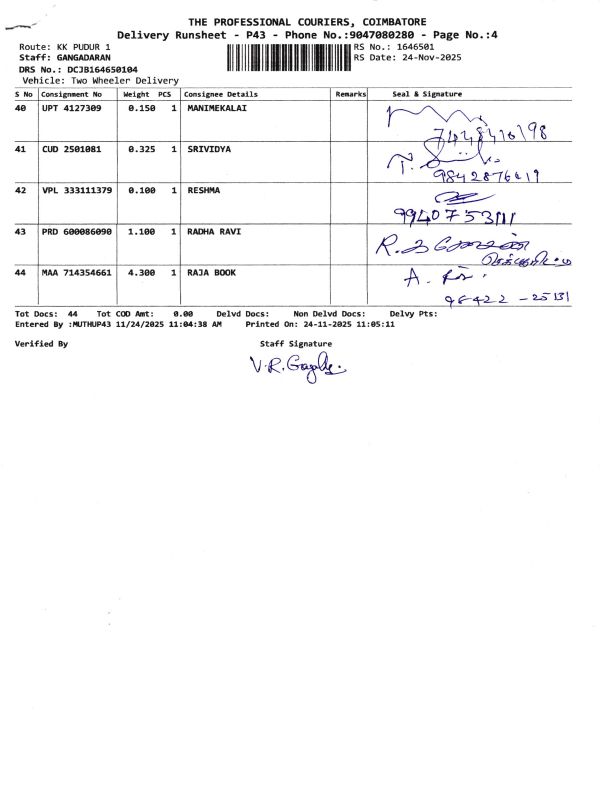 THE PROFESSIONAL COURIERS, COIMBATORE
Delivery Runsheet - P43 - Phone No.:9047080280 - Page No.:4
Route: KK PUDUR 1 RS No.: 1646501
Staff: GANGADARAN RS Date: 24-Nov-2025
DRS No.: DCJB164650104
Vehicle: Two Wheeler Delivery
S No Consignment No Weight PCS Consignee Details Remarks Seal & Signature
40 UPT 4127309 0.150 1 MANIMEKALAI
41 CUD 2501081 0.325 1 SRIVIDYA
T.
42 VPL 333111379 0.100 1 RESHMA
43 PRD 600086090 1.100 1 RADHA RAVI
R.
44 MAA 714354661 4.300 1 RAJA BOOK
A.
96422 - 25131
Tot Docs: 44 Tot COD Amt: 0.00 Delvd Docs: Non Delvd Docs: Delvy Pts:
Entered By :MUTHUP43 11/24/2025 11:04:38 AM Printed On: 24-11-2025 11:05:11
Verified By Staff Signature
V.R.